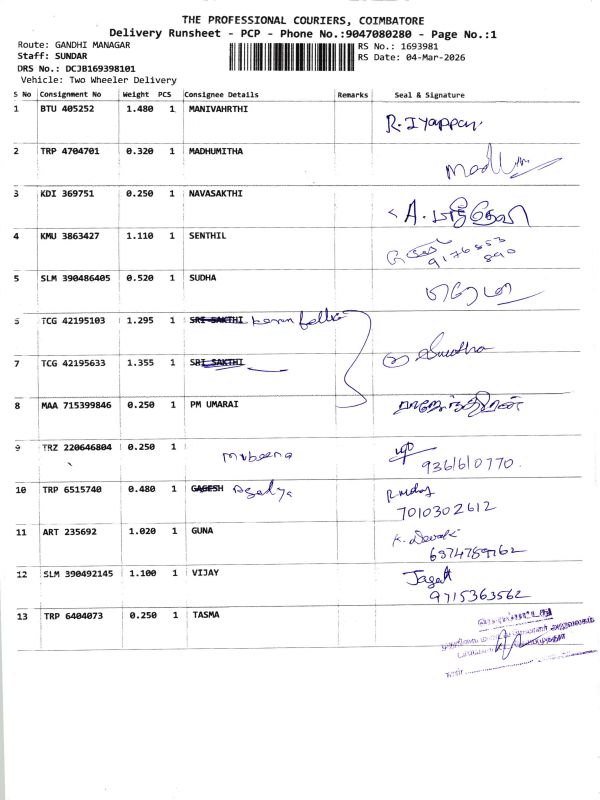 THE PROFESSIONAL COURIERS, COIMBATORE
Delivery Runsheet - PCP - Phone No.:9047080280 - Page No.:1
Route: GANDHI MANAGAR
RS No.: 1693981
Staff: SUNDAR
RS Date: 04-Mar-2026
DRS No.: DCJB169398101
Vehicle: Two Wheeler Delivery
S No Consignment No Weight PCS Consignee Details Remarks Seal & Signature
1 BTU 405252 1.480 1 MANIVAHRTHI R. Iyappan
2 TRP 4704701 0.320 1 MADHUMITHA
3 KDI 369751 0.250 1 NAVASAKTHI
4 KMU 3863427 1.110 1 SENTHIL
9176853
890
5 SLM 390486405 0.520 1 SUDHA
6 TCG 42195103 1.295 1 SRI SAKTHI
7 TCG 42195633 1.355 1 SRI SAKTHI
8 MAA 715399846 0.250 1 PM UMARAI
9 TRZ 220646804 0.250 1 Mubeena
9361610770
10 TRP 6515740 0.480 1 GAGESH
7010302612
11 ART 235692 1.020 1 GUNA K. Devaki
12 SLM 390492145 1.100 1 VIJAY
9715363562
13 TRP 6404073 0.250 1 TASMA